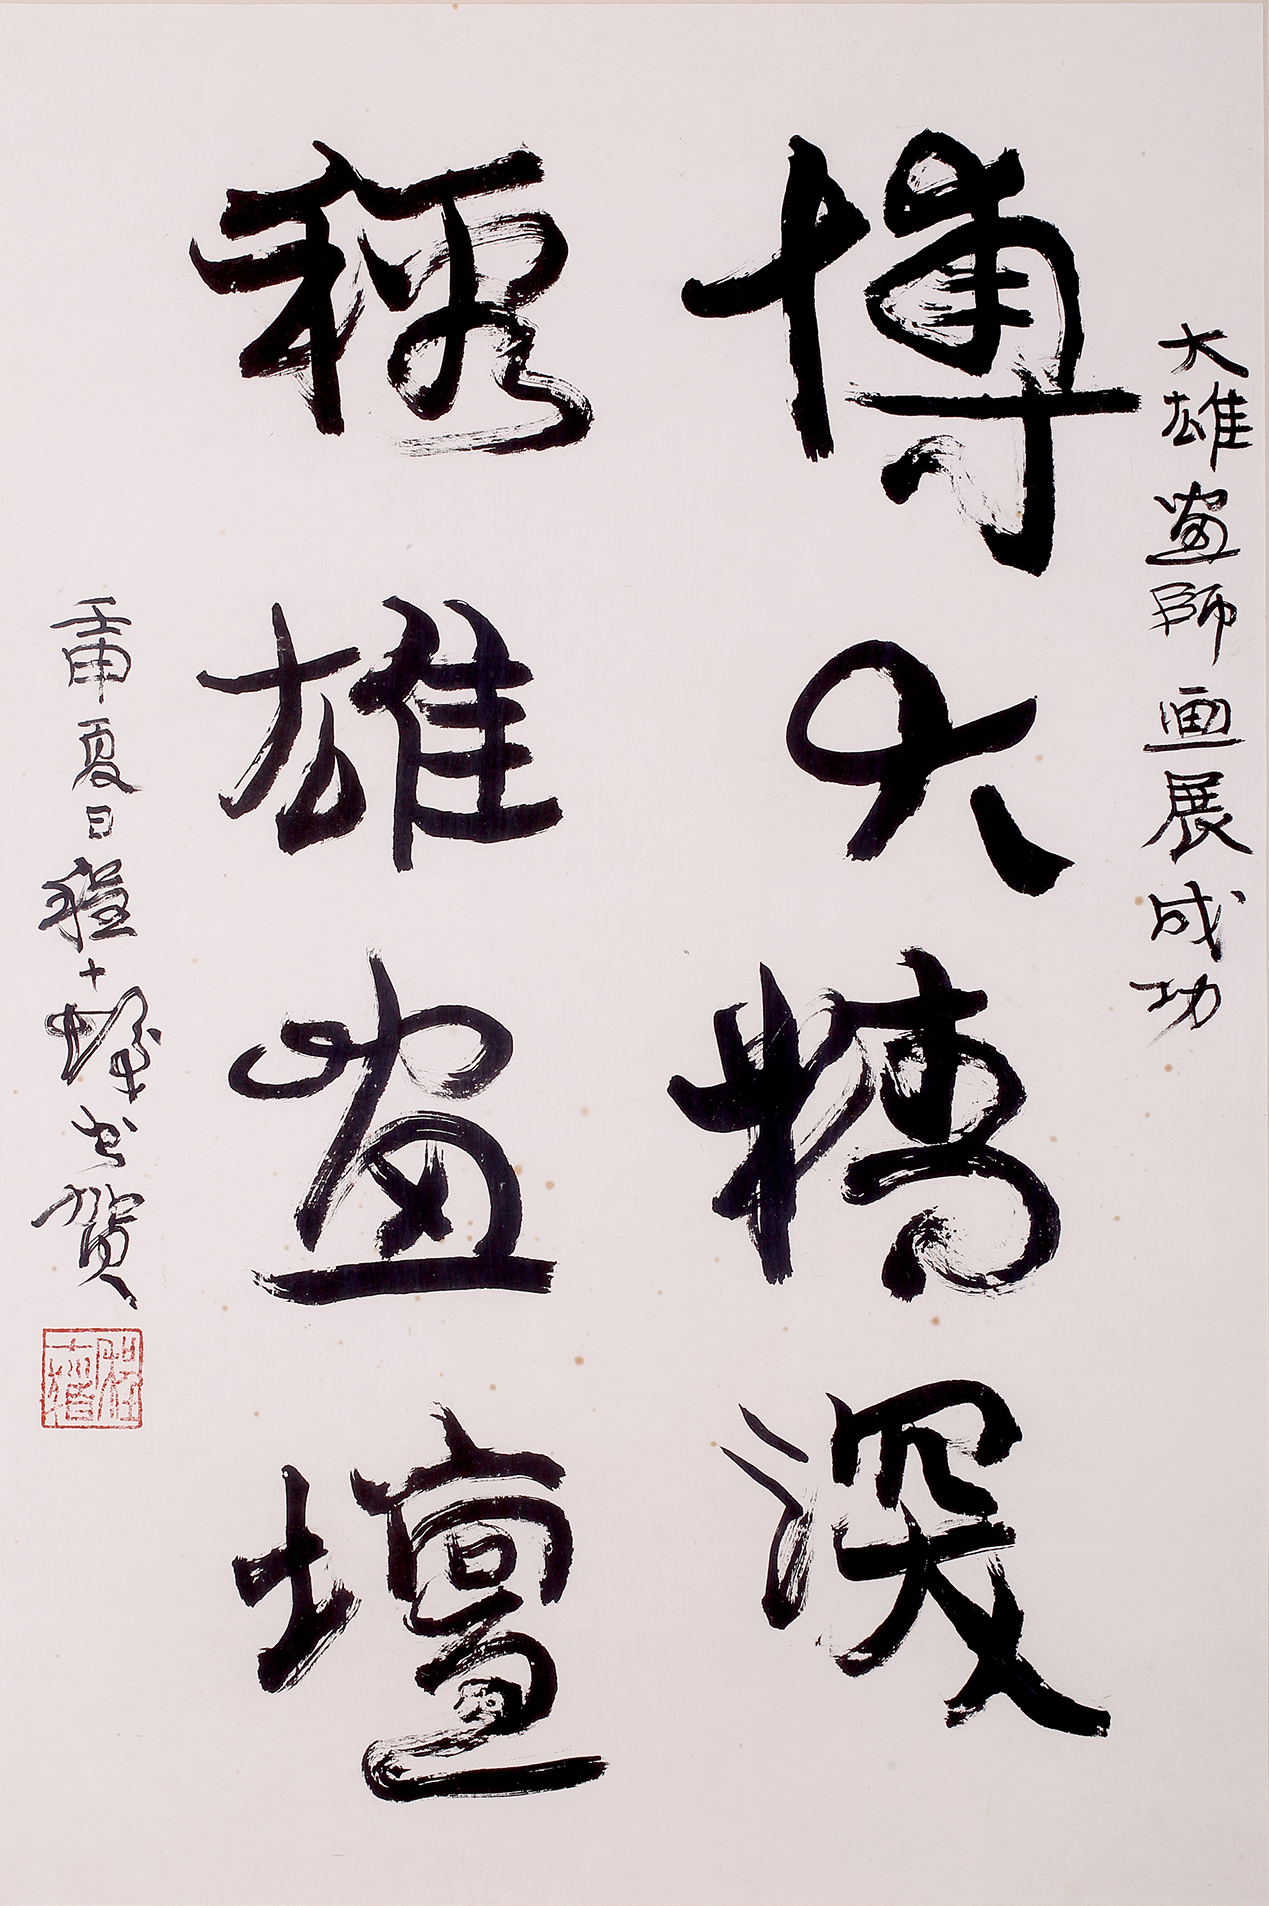 大雄畫師画展成功
博大精深
稱雄畫壇
壬申夏日程十髮书贺